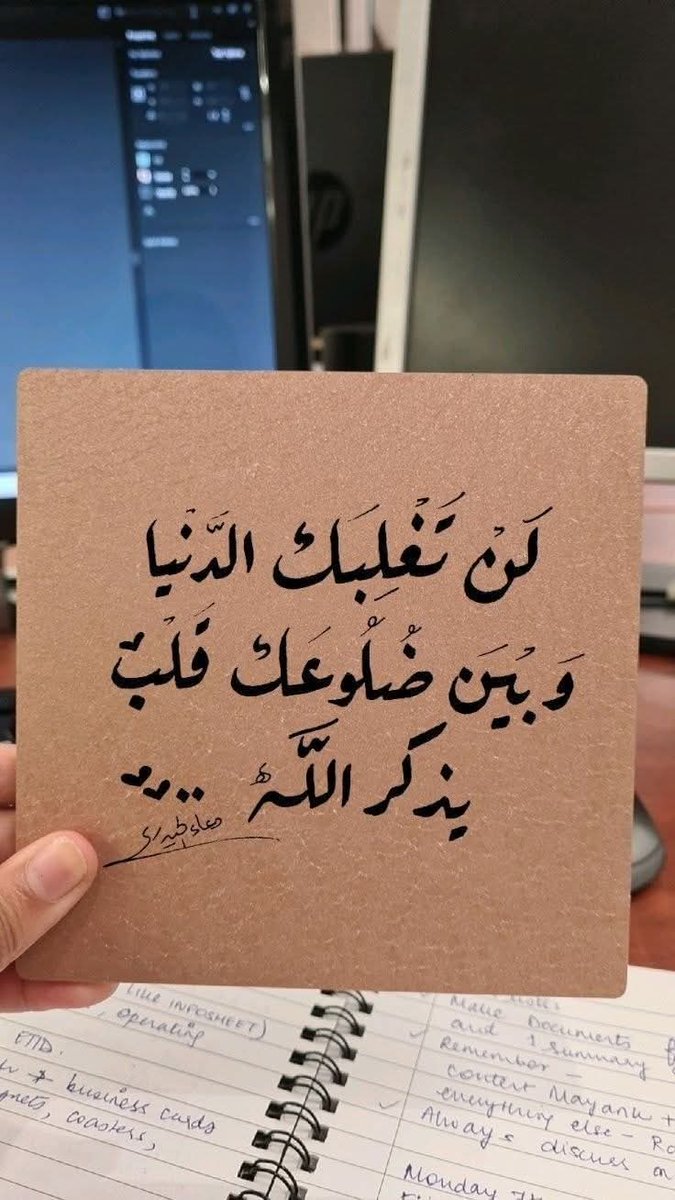 لَنْ تَغْلِبَكَ الدَّنْيا
وَبْيَن ضُلُوعَكَ قَلْبٌ
يذكر اللَّه ..
hp
LIKE INFOSHEET)
, operating
business cards
coasters,
Make Documents
and 1 summary
Remember –
content Mayank +
everything else –
Always discuss on
Monday